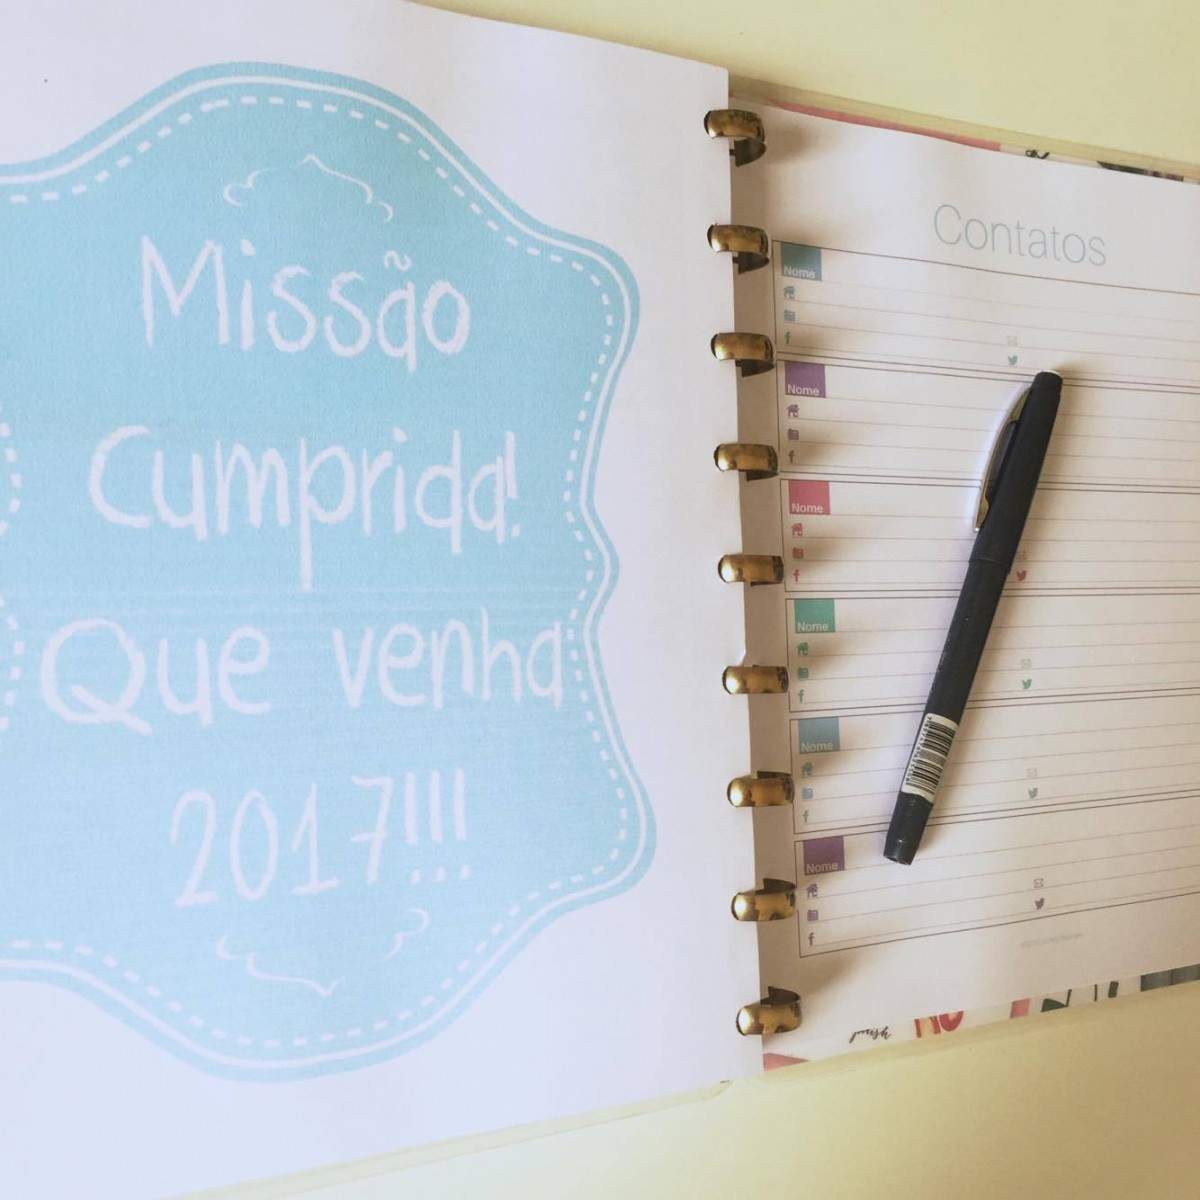 Missão
Cumprida!
Que venha
2017!!!
Contatos
Nome
Nome
Nome
Nome
Nome
Nome